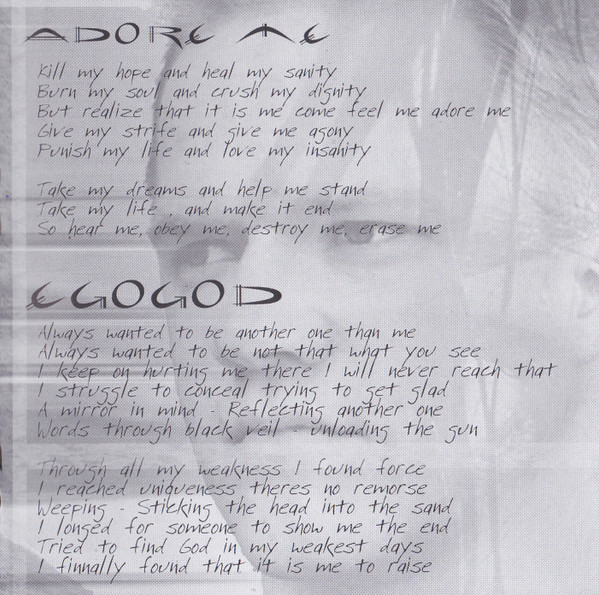 ADORE ME
Kill my hope and heal my sanity
Burn my soul and crush my dignity
But realize that it is me come feel me adore me
Give my strife and give me agony
Punish my life and love my insanity
Take my dreams and help me stand
Take my life , and make it end
So hear me, obey me, destroy me, erase me
EGOGOD
Always wanted to be another one than me
Always wanted to be not that what you see
I keep on hurting me there I will never reach that
I struggle to conceal trying to get glad
A mirror in mind - Reflecting another one
Words through black veil - unloading the gun
Through all my weakness I found force
I reached uniqueness theres no remorse
Weeping - Sticking the head into the sand
I longed for someone to show me the end
Tried to find God in my weakest days
I finnally found that it is me to raise